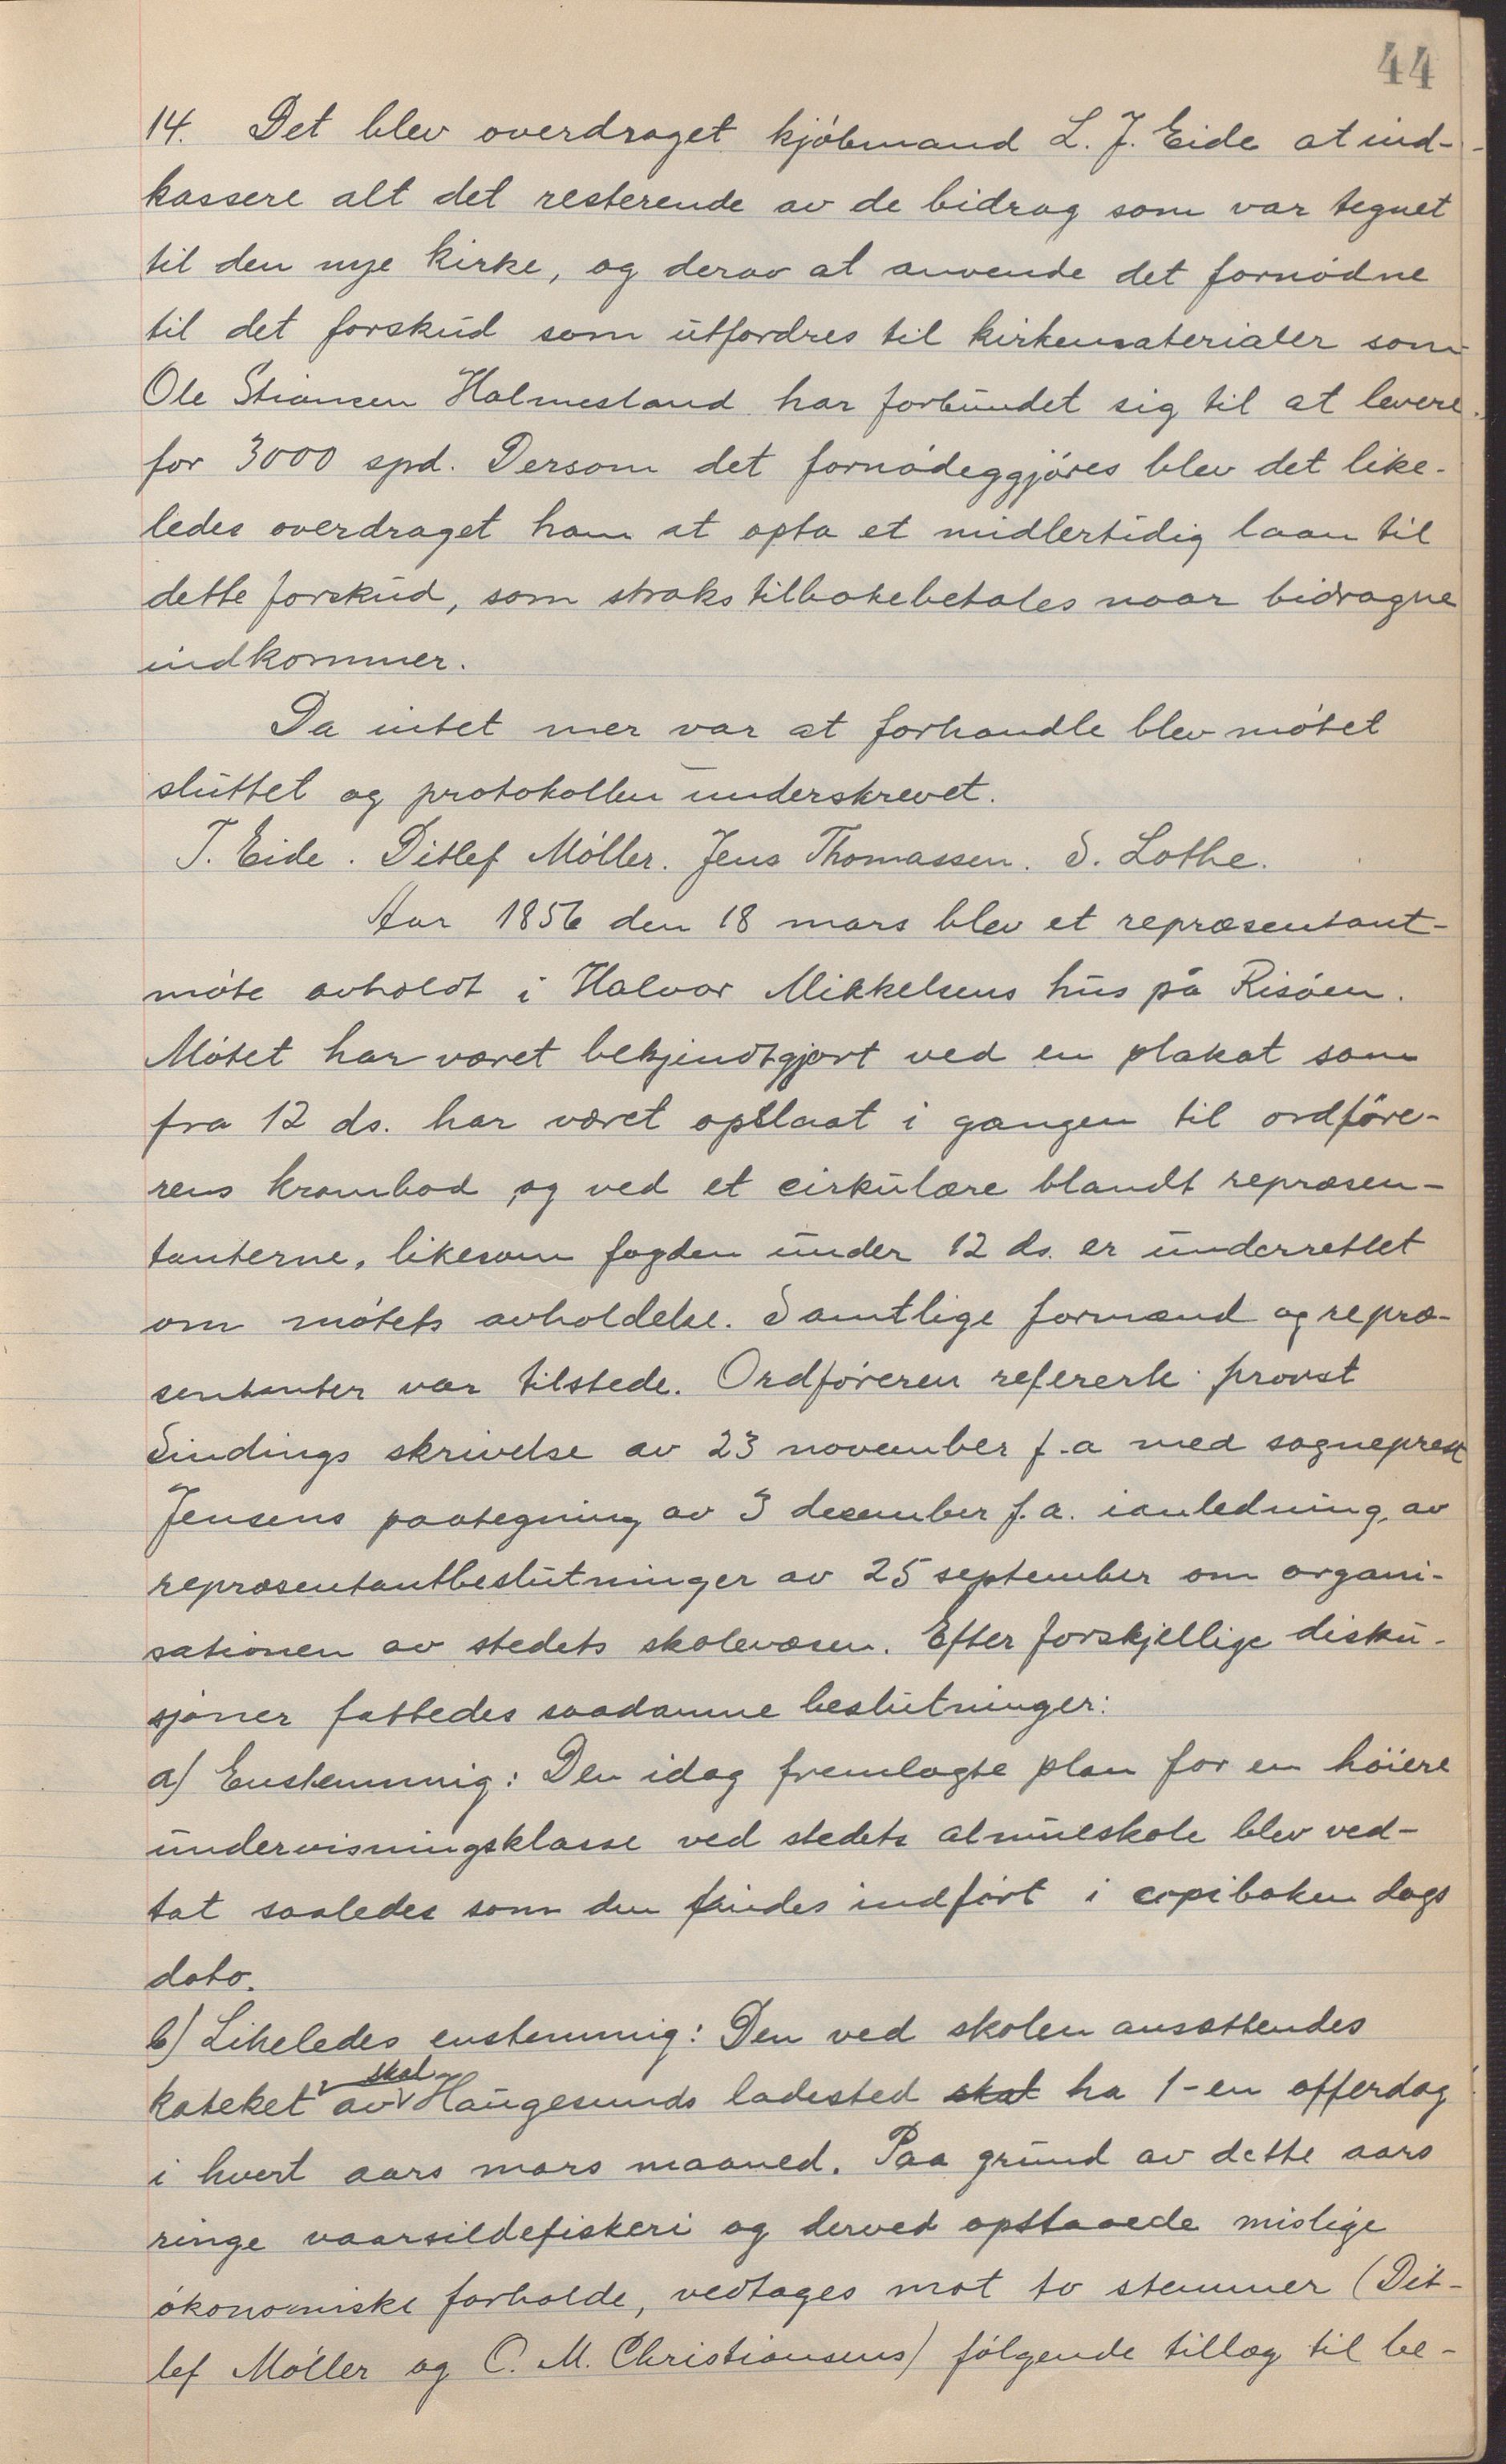 44
14. Det blev overdraget kjöbmand L. J. Eide at ind-
kassere alt det resterende av de bidrag som var tegnet
til den nye kirke, og derav at anvende det fornödne
til det forskud som utfordres til kirkematerialer som
Ole Stiansen Halmesland har forbundet sig til at levere
for 3000 spd. Dersom det fornödeggjöres blev det like-
ledes overdraget ham at opta et midlertidig laan til
dette forskud, som straks tilbakebetales naar bidragne
indkommer.
Da intet mer var at forhandle blev mötet
sluttet og protokollen underskrevet.
T. Eide. Ditlef Möller. Jens Thomassen. S. Lothe.
Aar 1856 den 18 mars blev et repræsentant-
möte avholdt i Halvor Mikkelsens hus på Risöen.
Mötet har været bekjendtgjort ved en plakat som
fra 12 ds. har været opslaat i gangen til ordföre-
rens krambod og ved et cirkulære blandt repræsen-
tanterne, likesom fogden under 12 ds. er underrettet
om mötets avholdelse. Samtlige formænd og repræ-
sentanter var tilstede. Ordföreren refererte provst
Sindings skrivelse av 23 november f.a med sogneprest
Jensens paategning av 3 december f.a. ianledning av
repræsentantbeslutninger av 25 september om organi-
sationen av stedets skolevæsen. Efter forskjellige disku-
sjoner fattedes saadanne beslutninger:
a) Enstemmig: Den idag fremlagte plan for en höiere
undervisningsklasse ved stedets almueskole blev ved-
tat saaledes som den findes indfört i copiboken dags
dato.
b) Likeledes enstemmig: Den ved skolen ansættendes
kateket av skal Haugesunds ladested skal ha 1-en offerdag
i hvert aars mars maaned. Paa grund av dette aars
ringe vaarsildefiskeri og derved opstaaede mislige
ökonomiske forholde, vedtages mot to stemmer (Dit-
lef Möller og C. M. Christiansens) fölgende tillæg til be-